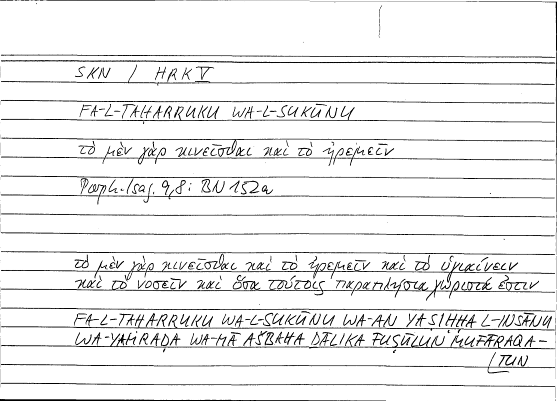 SKN / ḤRK V
FA-L-TAḤARRUKU WA-L-SUKŪNU
τὸ μὲν γὰρ κινεῖσθαι καὶ τὸ ἠρεμεῖν
Porph. Isag. 9,8 : BN 152a
τὸ μὲν γὰρ κινεῖσθαι καὶ τὸ ἠρεμεῖν καὶ τὸ ὑγιαίνειν
καὶ τὸ νοσεῖν καὶ ὅσα τούτοις παραπλήσια χωριστά ἐστιν
FA-L-TAḤARRUKU WA-L-SUKŪNU WA-AN YAṢIḤḤA L-INSĀNU
WA-YAMRAḌA WA-MĀ AŠBAHA ḎĀLIKA FUṢŪLUN MUFĀRAQA-
TUN